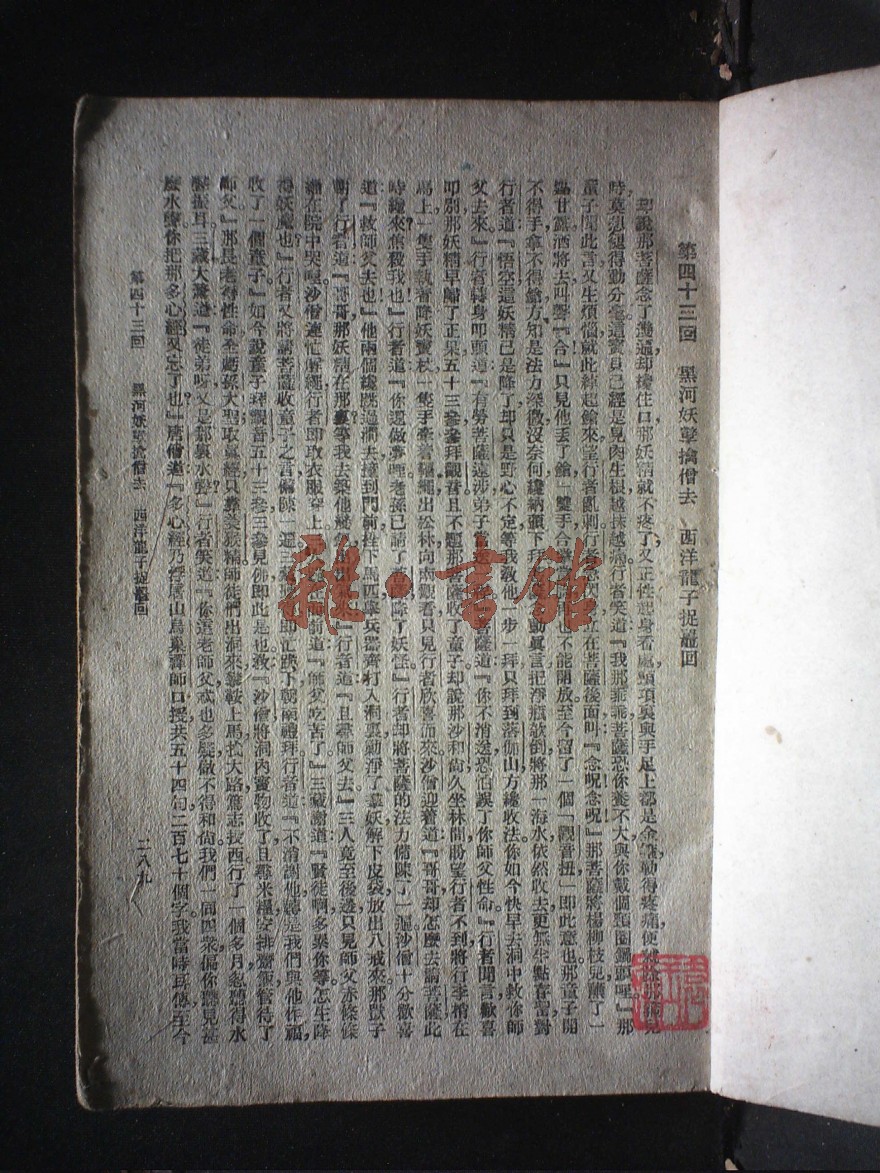 第四十三回　黑河妖孽擒僧去　西洋龍子捉鼉回
却說那菩薩念了幾遍却纔住口那妖精就不疼了又正性起身看處頸項裏與手足上都是金箍勒得疼痛便
時莫想褪得動分毫這寶貝已經是見肉生根越抹越痛行者笑道『我那乖乖菩薩恐你養不大與你戴個頸圈鐲頭哩』那
童子聞此言又生煩惱就此綽起鎗來望行者亂刺行者急 在菩薩後面叫『念咒念咒』那菩薩將楊柳枝兒蘸了一
點甘露洒將去叫聲『合』只見他丟了鎗一雙手合 也不能開放至今留了一個『觀音扭』即此意也那童子開
不得手拿不得鎗方知是法力深微沒奈何纔納頭下拜 動真言把淨瓶欹倒將那一海水依然收去更無半點存留對
行者道『悟空這妖精已是降了却只是野心不定等我敎他一步一拜只拜到落伽山方纔收法你如今快早去洞中救你師
父去來』行者轉身叩頭道『有勞菩薩遠涉弟子 菩薩道『你不消送恐怕誤了你師父性命』行者聞言歡喜
叩別那妖精早歸了正果五十三參參拜觀音且不題那菩薩收了童子却說那沙和尚久坐林間盼望行者不到將行李梢在
馬上一隻手執着降妖寶杖一隻手牽着韁繩出松林向南觀看只見行者欣喜而來沙僧迎着道『哥哥却怎麼去請菩薩此
時纔來焦殺我也』行者道『你還做夢哩老孫已請了菩薩降了妖怪』行者却將菩薩的法力備陳了一遍沙僧十分歡喜
道『救師父去也』他兩個纔跳過澗去撞到門前拴下馬匹擧兵器齊打入洞裏勦淨了羣妖解下皮袋放出八戒來那獃子
謝了行者道『哥哥那妖精在那裏等我去築他幾 出出氣來』行者道『且尋師父去』三人竟至後邊只見師父赤條條
綑在院中哭哩沙僧連忙解繩行者即取衣服穿上三 前道『師父吃苦了』三藏謝道『賢徒啊多累你等怎生降
得妖魔也』行者又將請菩薩收童子之言備陳一遍三藏 即忙跪下朝南禮拜行者道『不消謝他轉是我們與他作福
收了一個童子』如今說童子拜觀音五十三參三參見佛即此是也敎『沙僧將洞內寶物收了且尋米糧安排齋飯管待了
師父』那長老得性命全虧孫大聖取眞經只靠美猴精師徒們出洞來攀鞍上馬找大路篤志投西行了一個多月忽聽得水
聲振耳三藏大驚道『徒弟呀又是那裏水聲』行者笑道『你這老師父忒也多疑做不得和尚我們一同四衆偏你聽見甚
麼水聲你把那多心經又忘了也』唐僧道『多心經乃浮屠山烏巢禪師口授共五十四句二百七十個字我當時耳傳至今
第四十三回　黑河妖孽擒僧去　西洋龍子捉鼉回
二八九
雜·書館